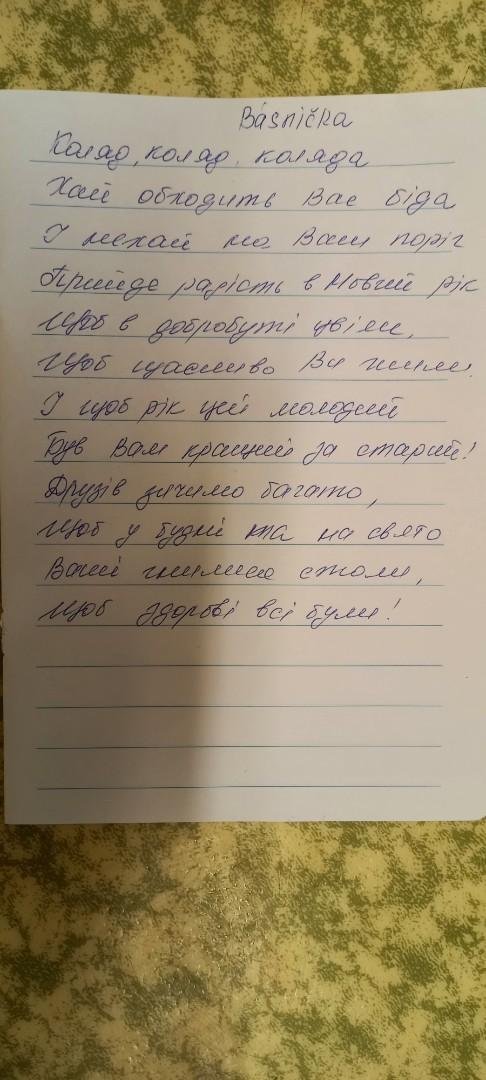 Básnička
Коляд, коляд, коляда
Хай обходить Вас біда
І нехай на Ваш поріг
Прийде радість в Новий рік
Щоб в добробуті цвіли,
Щоб щасливо Ви жили.
І щоб рік цей молодий
Був Вам кращий за старий!
Друзів зичимо багато,
Щоб у будні та на свято
Ваші гнулися столи,
Щоб здорові всі були!